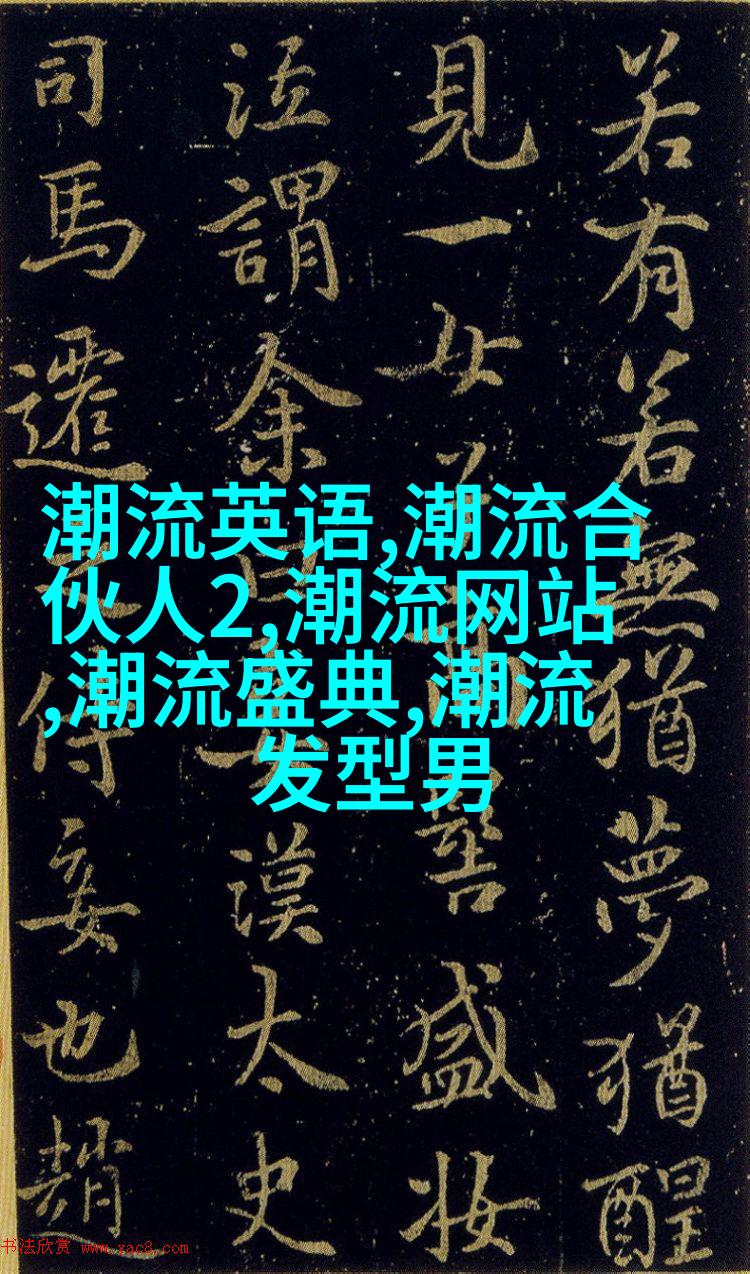 若有若無猶夢猶醒
見一女髻盛妝
泣謂余曰妾漢太史
司馬遷之侍妾也趙
潮流英语,潮流合
伙人2,潮流网站
,潮流盛典,潮流
发型男
书法欣赏 www.yac8.com